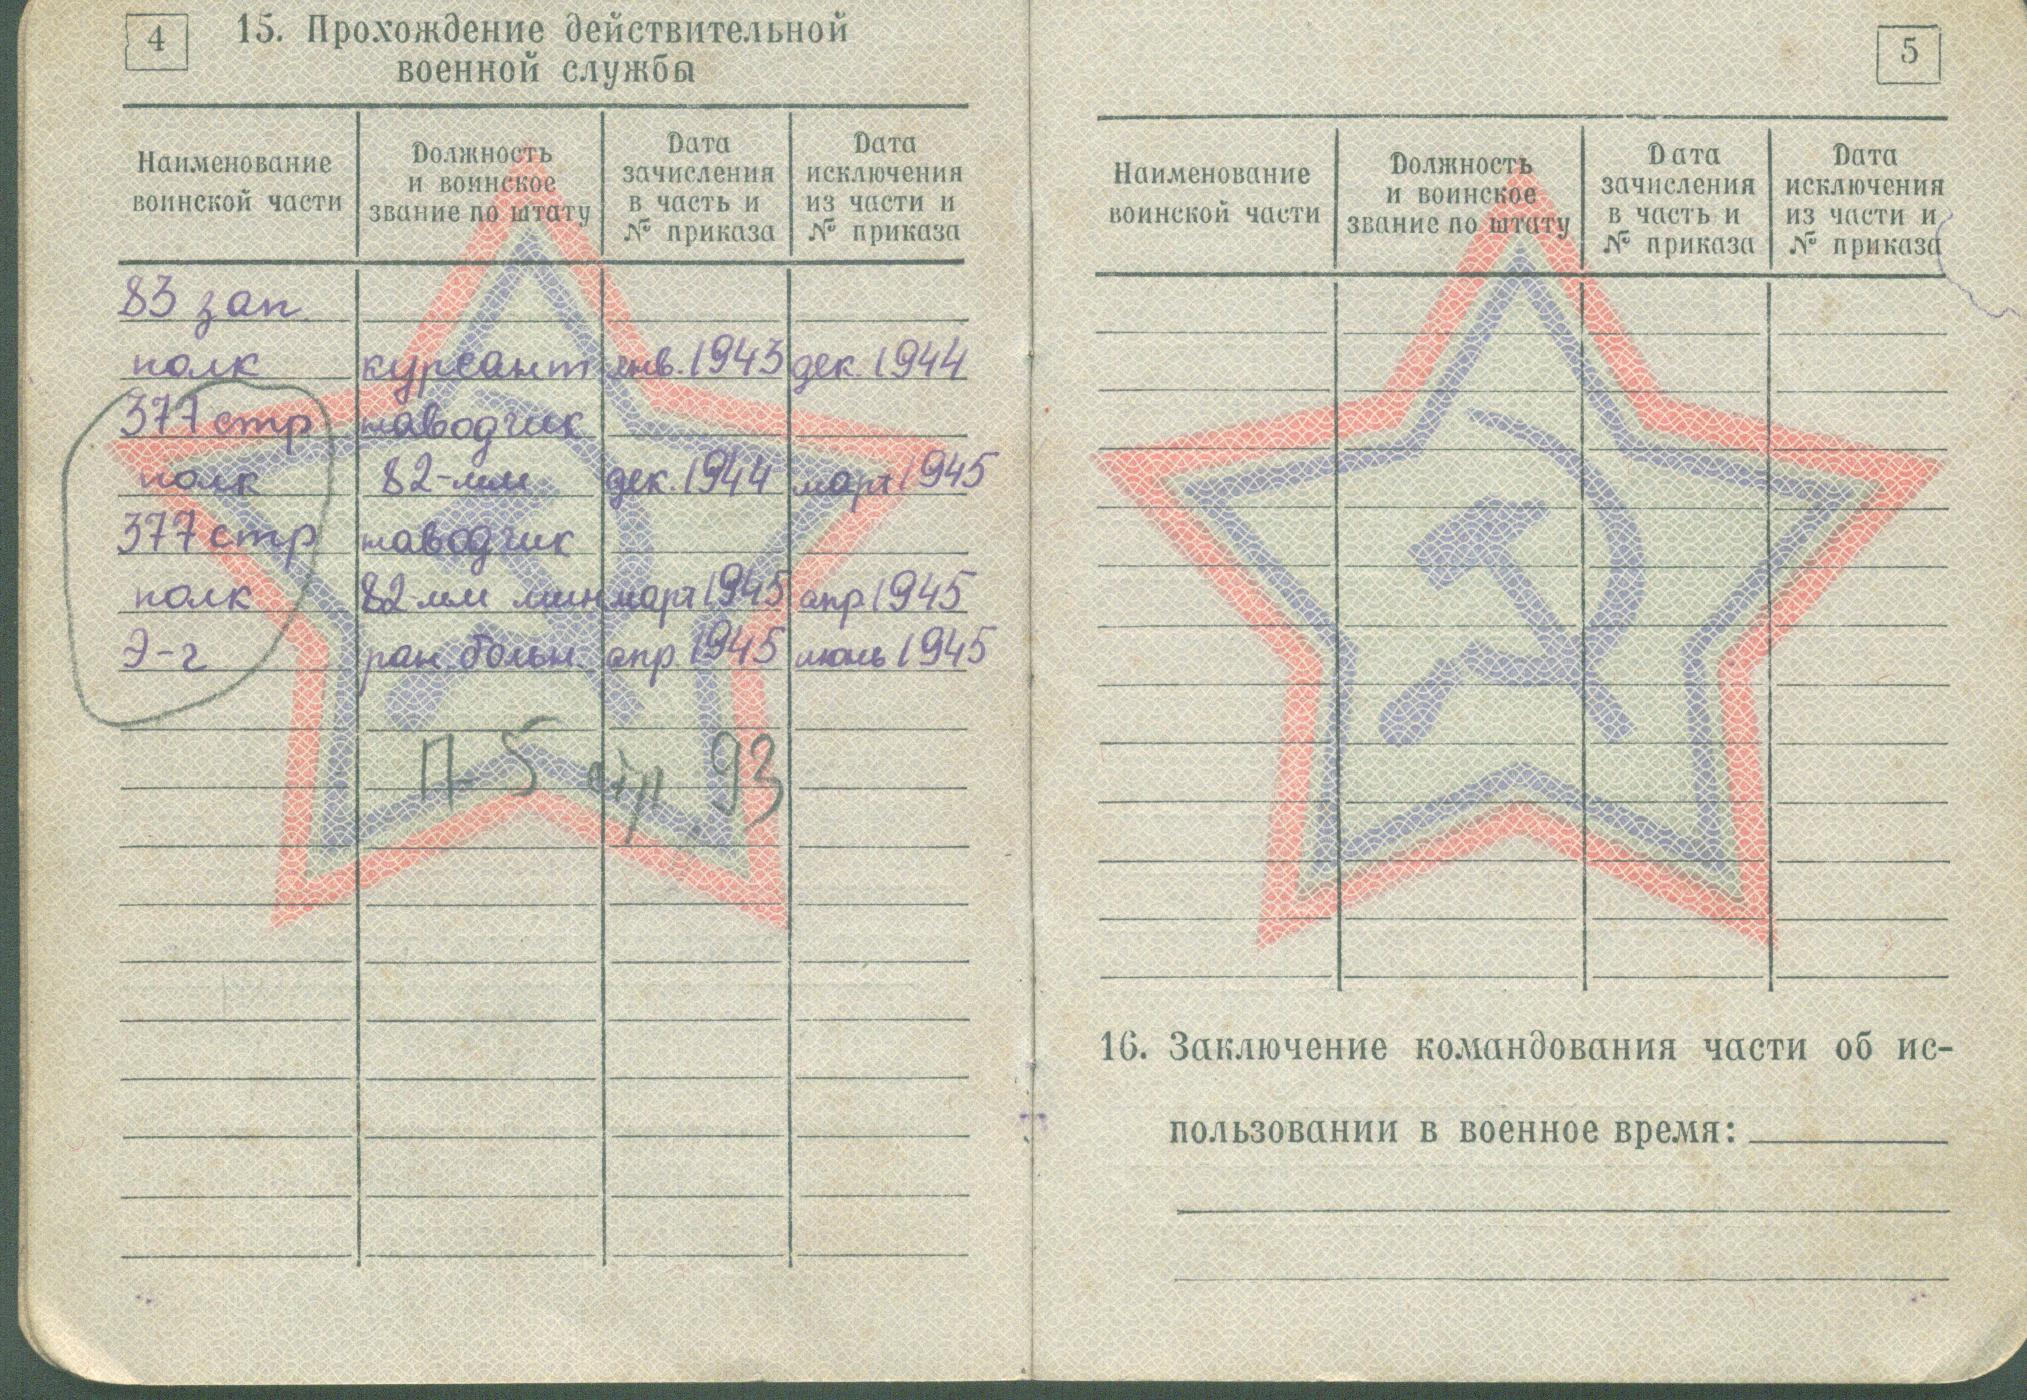 4
15. Прохождение действительной
военной службы
Наименование воинской части
Должность и воинское звание по штату
Дата зачисления в часть и № приказа
Дата исключения из части и № приказа
83 зап.
полк курсант янв. 1943 дек. 1944
377 стр наводчик
полк 82-мм дек. 1944 март 1945
377 стр наводчик
полк 82-мм мин март 1945 апр 1945
Э-г ран. больн. апр. 1945 июль 1945
П-5 стр. 93
5
Наименование воинской части
Должность и воинское звание по штату
Дата зачисления в часть и № приказа
Дата исключения из части и № приказа
16. Заключение командования части об ис-
пользовании в военное время: